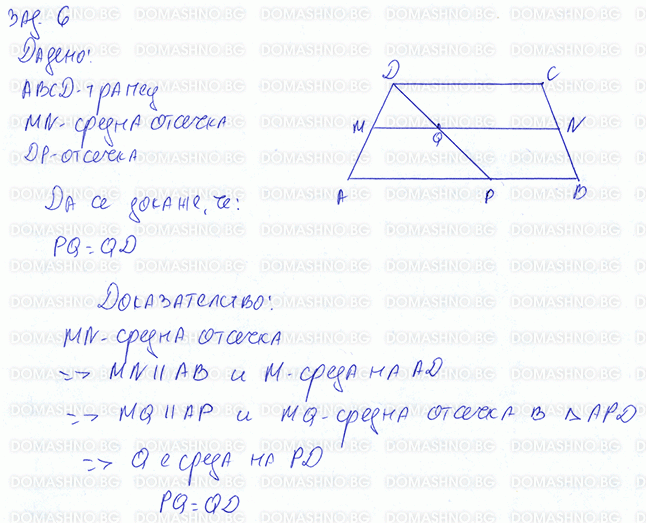 зад. 6
Дадено:
ABCD-трапец
MN-средна отсечка
DP-отсечка
Да се докаже, че:
PQ=QD
D C
M Q N
A P B
Доказателство:
MN-средна отсечка
=> MN||AB и M-среда на AD
=> MQ||AP и MQ-средна отсечка в △APD
=> Q е среда на PD
PQ=QD
DOMASHNO.BG